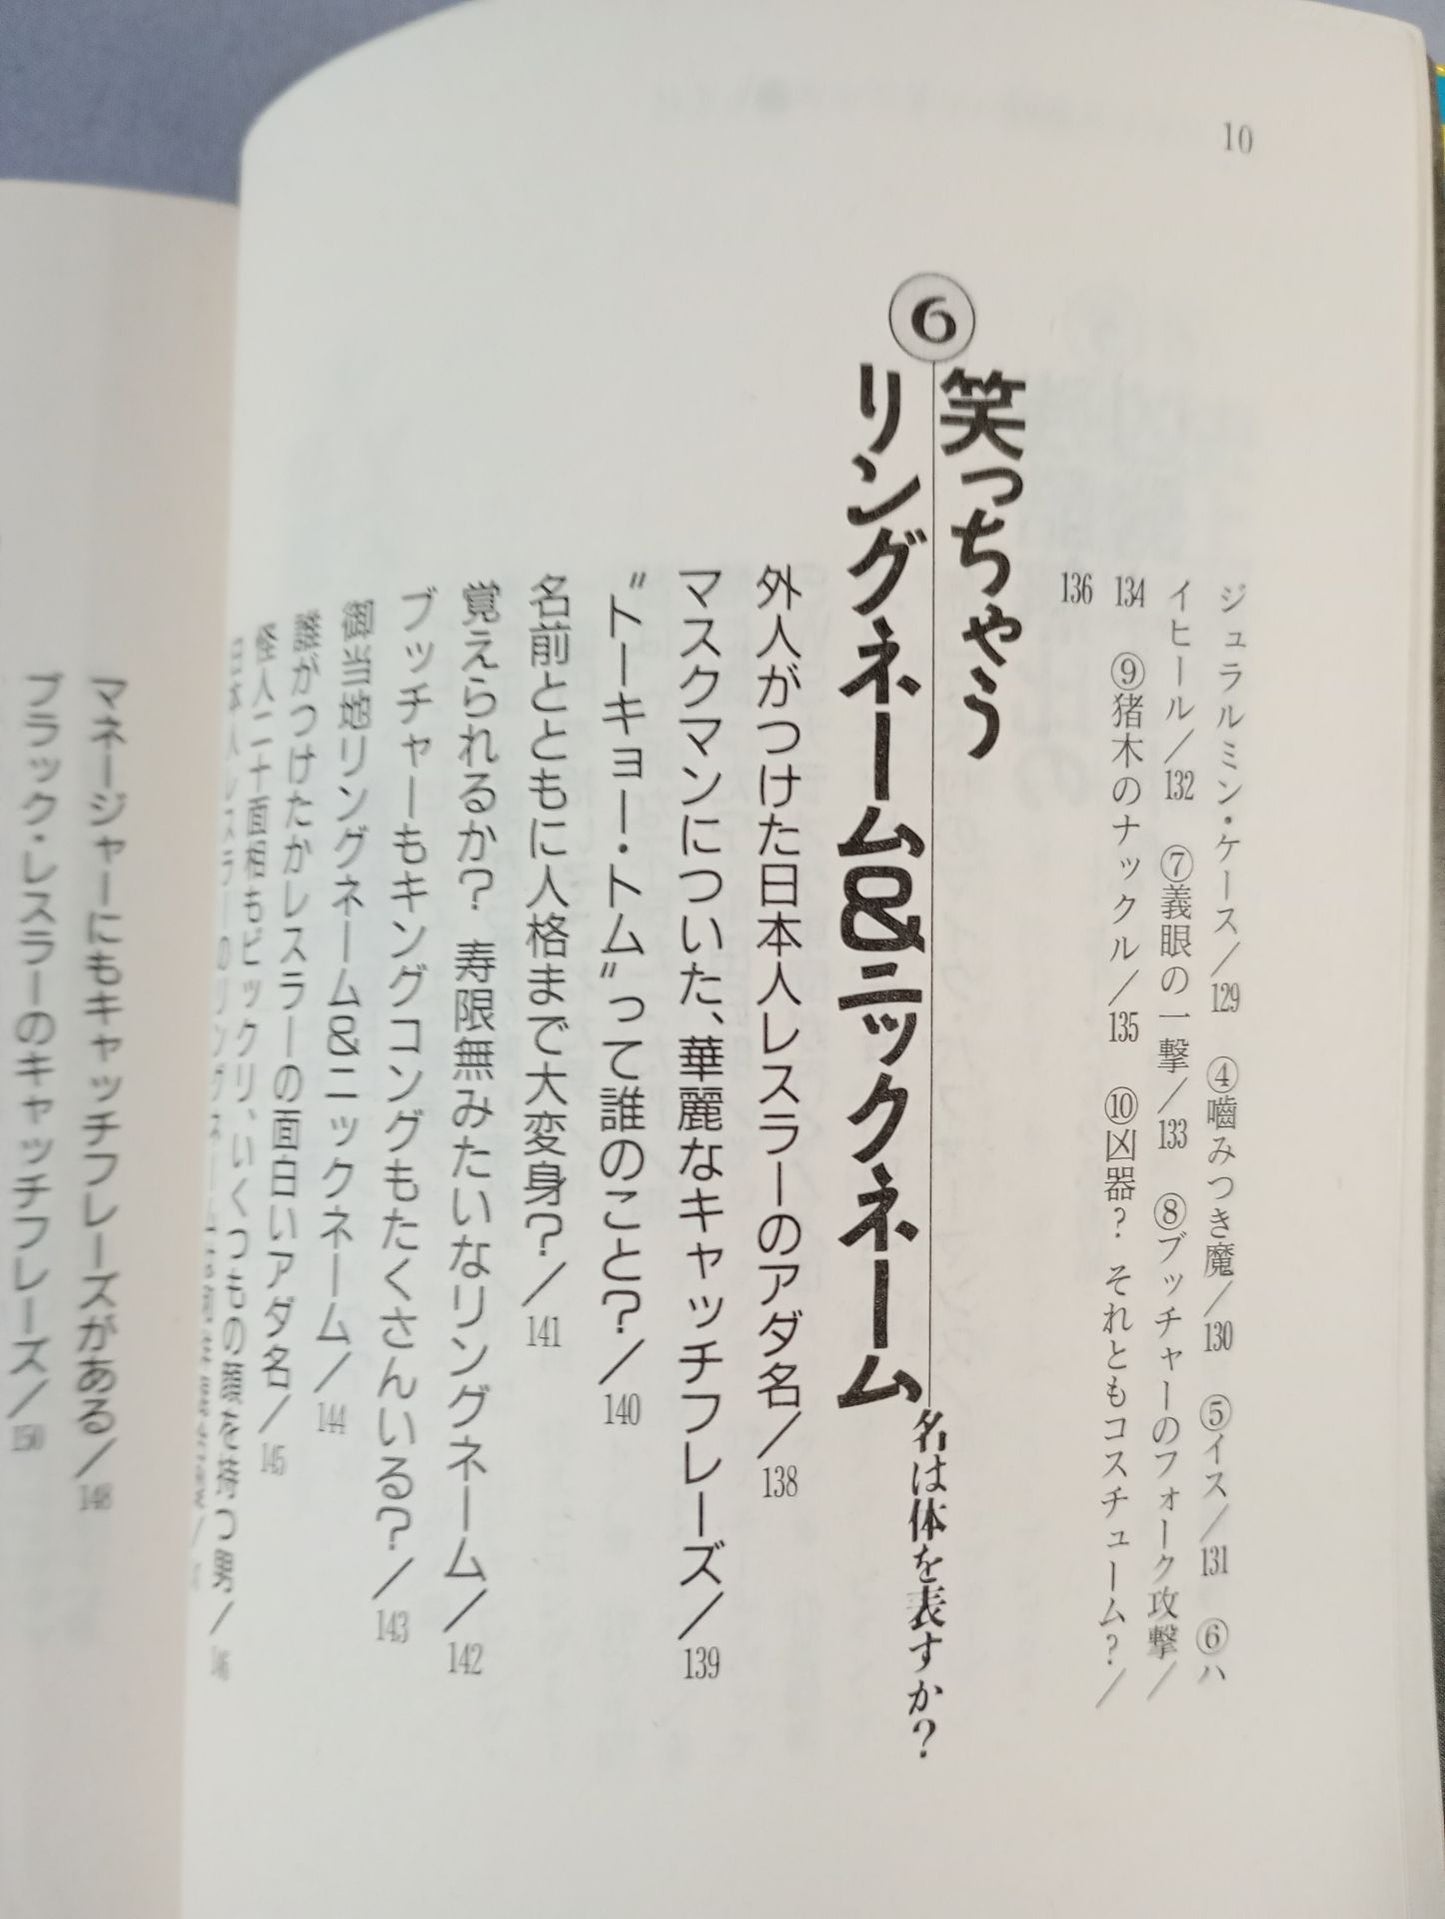 10
ジュラルミン・ケース／129　④嚙みつき魔／130　⑤イス／131　⑥ハ
イヒール／132　⑦義眼の一撃／133　⑧ブッチャーのフォーク攻撃／
134　⑨猪木のナックル／135　⑩凶器？それともコスチューム？／
136
⑥笑っちゃう
リングネーム&ニックネーム
名は体を表すか？
外人がつけた日本人レスラーのアダ名／138
マスクマンについた、華麗なキャッチフレーズ／139
〝トーキョー・トム〟って誰のこと？／140
名前とともに人格まで大変身？／141
覚えられるか？　寿限無みたいなリングネーム／142
ブッチャーもキングコングもたくさんいる？／143
御当地リングネーム&ニックネーム／144
誰がつけたかレスラーの面白いアダ名／145
怪人二十面相もビックリ、いくつもの顔を持つ男／146
日本人レスラーのリングネーム
マネージャーにもキャッチフレーズがある／148
ブラック・レスラーのキャッチフレーズ／150